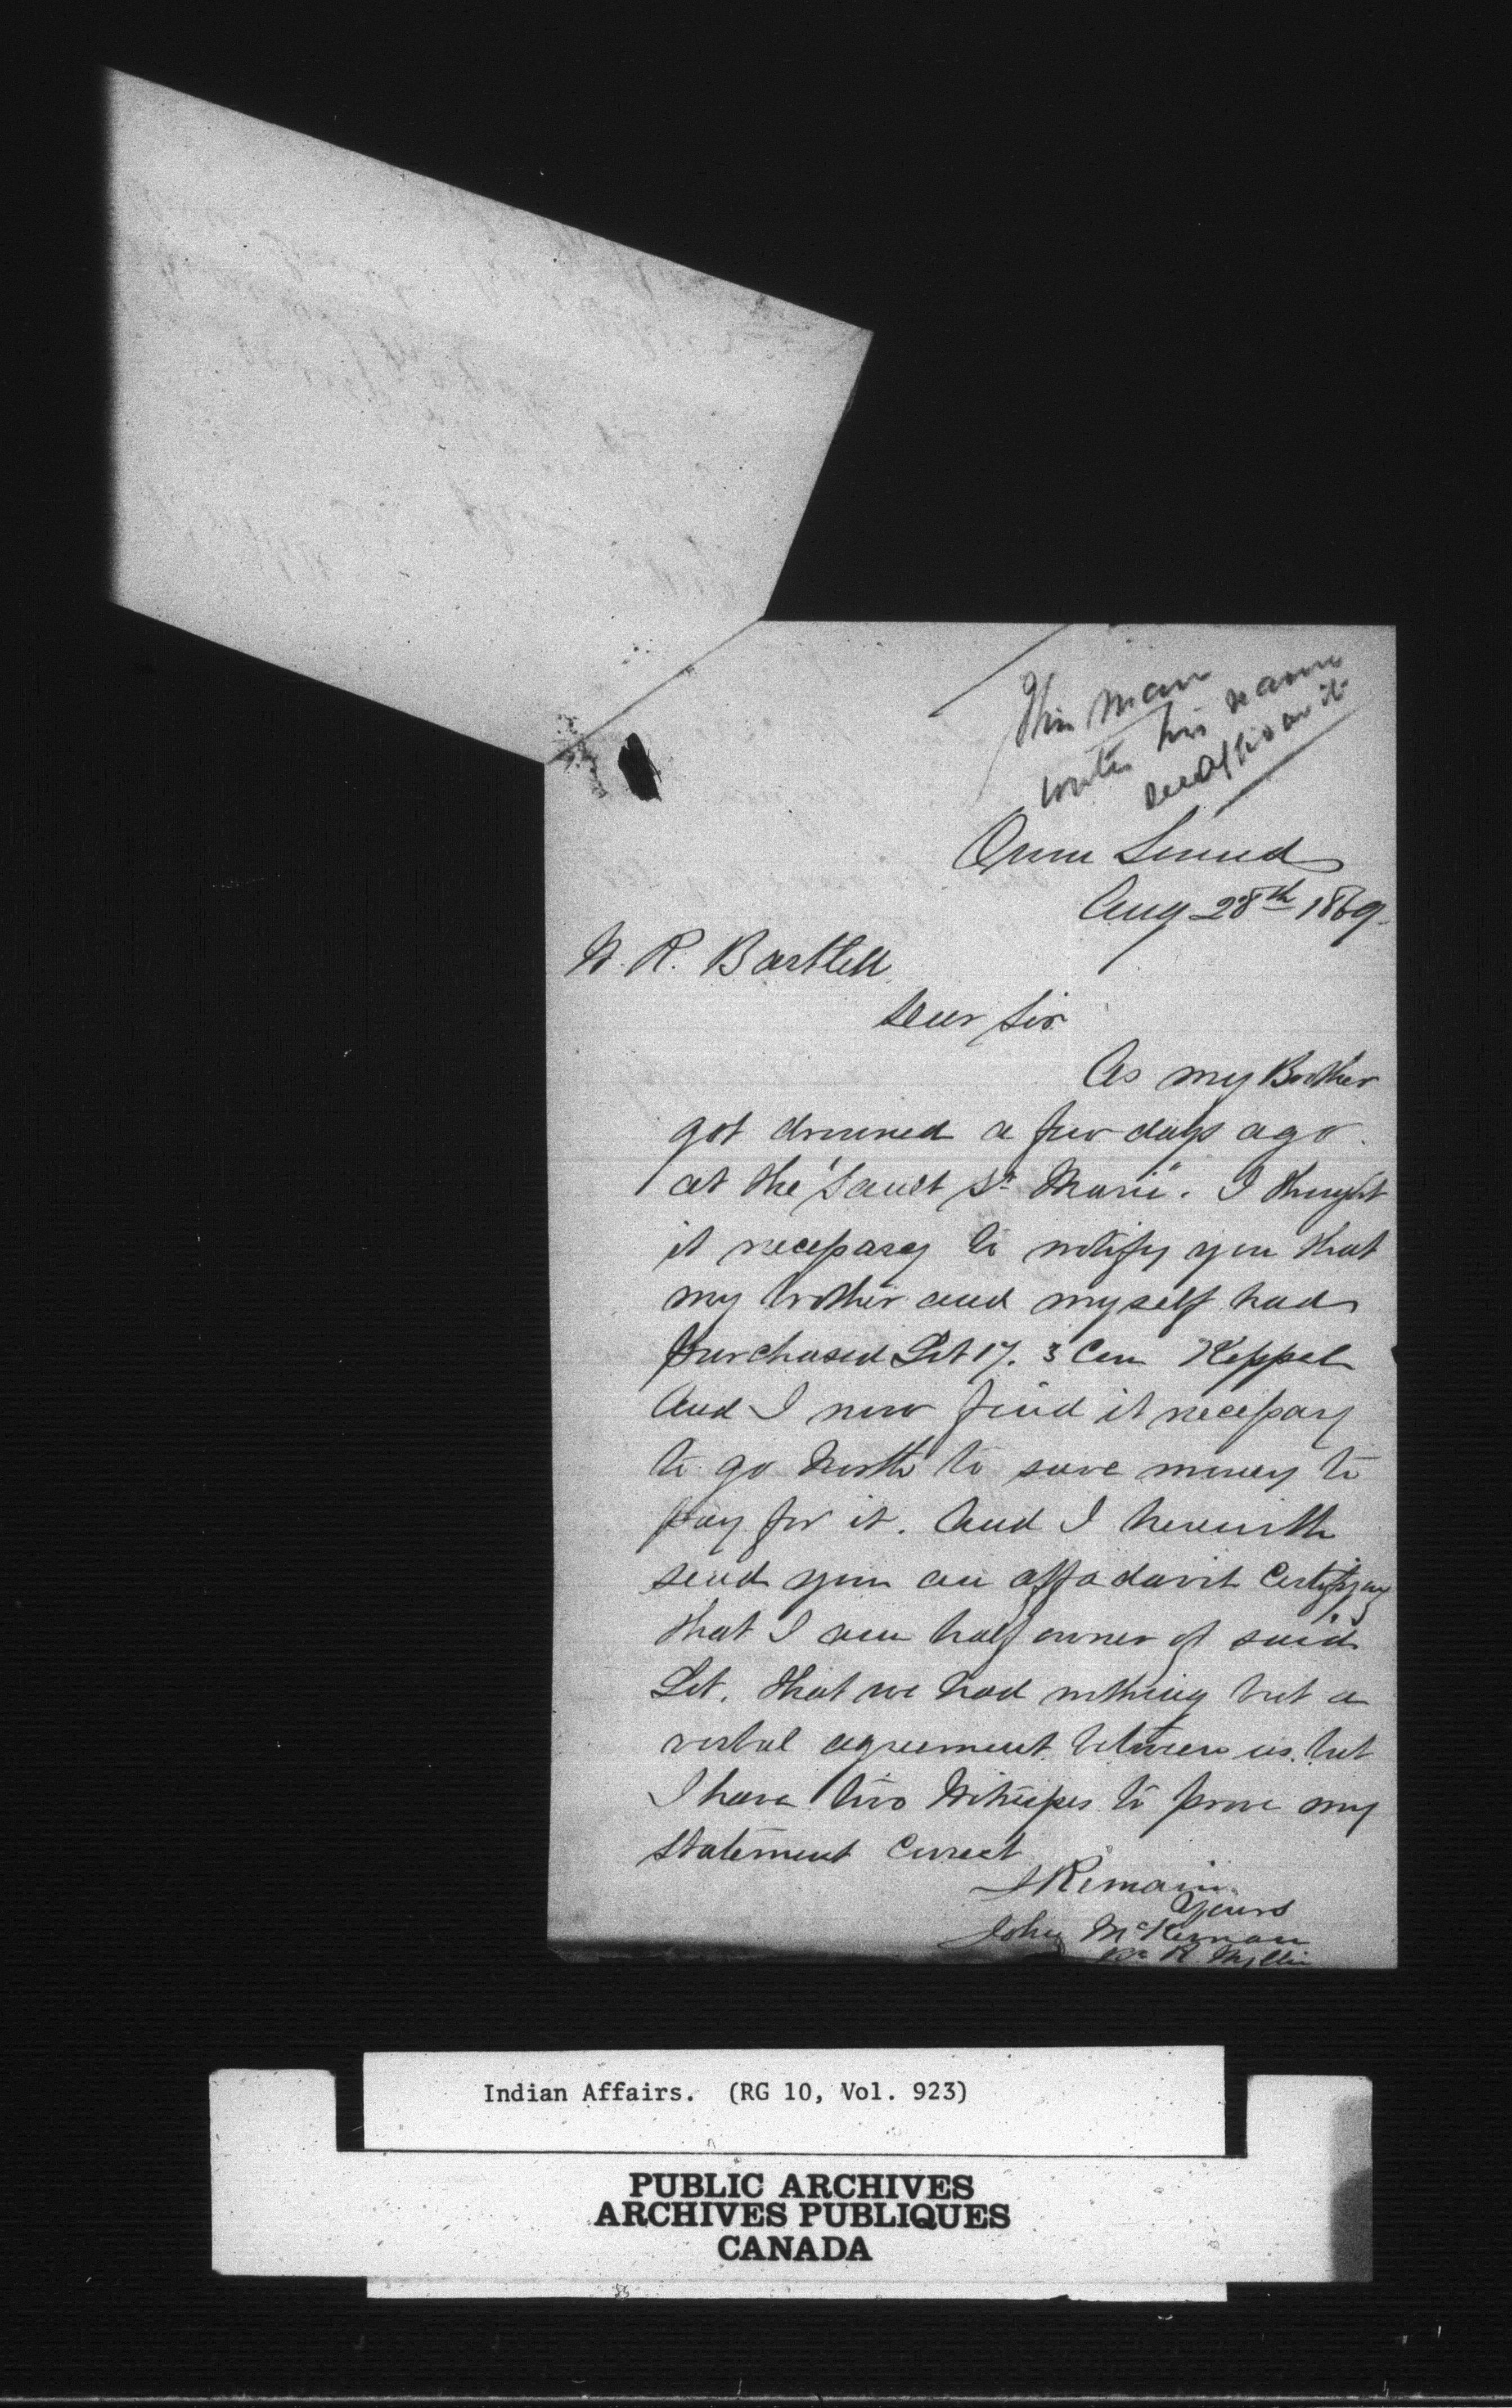 This man
writes his name
see affidavit
Owen Sound
Aug 28th 1869.
W. R. Bartlett
Dear Sir
As my Brother
got drowned a few days ago.
at the "Sault St Marie". I thought
it necessary to notify you that
my brother and myself had
purchased Lot 17. 3 Con Keppel
And I now find it necessary
to go North to save money to
pay for it. And I herewith
send you an affadavit Certifying
that I am half owner of said
Lot. that we had nothing but a
verbal agreement between us. but
I have two Witnesses to prove my
statement Correct
I Remain
Yours
John McKernan
Pr R. Wyllie
Indian Affairs. (RG 10, Vol. 923)
PUBLIC ARCHIVES
ARCHIVES PUBLIQUES
CANADA